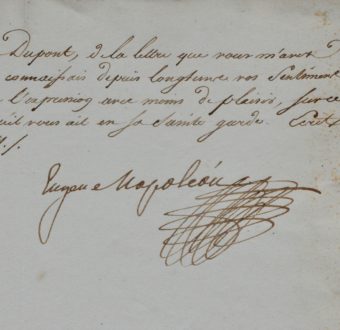 Dupont, de la lettre que vous m'avez
connaissais depuis longtems vos Sentiment
l'expression avec moins de plaisir, sur ce
ait vous ait en sa Sainte garde. Ecrit
Eugene Napoléon